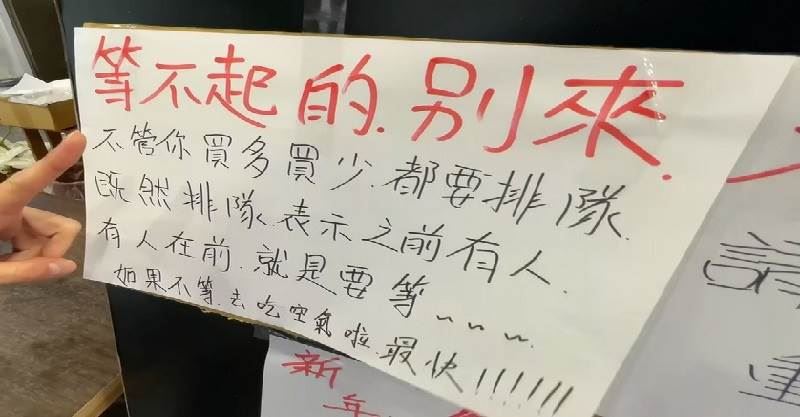 等不起的.別來.
不管你買多買少.都要排隊.
既然排隊.表示之前有人.
有人在前.就是要等~~~
如果不等.去吃空氣啦.最快!!!!!!
請
重
新
年